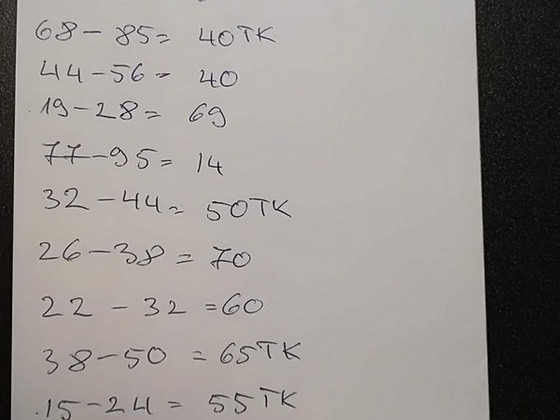 68 - 85 = 40TK
44 - 56 = 40
19 - 28 = 69
77 - 95 = 14
32 - 44 = 50TK
26 - 38 = 70
22 - 32 = 60
38 - 50 = 65TK
15 - 24 = 55TK